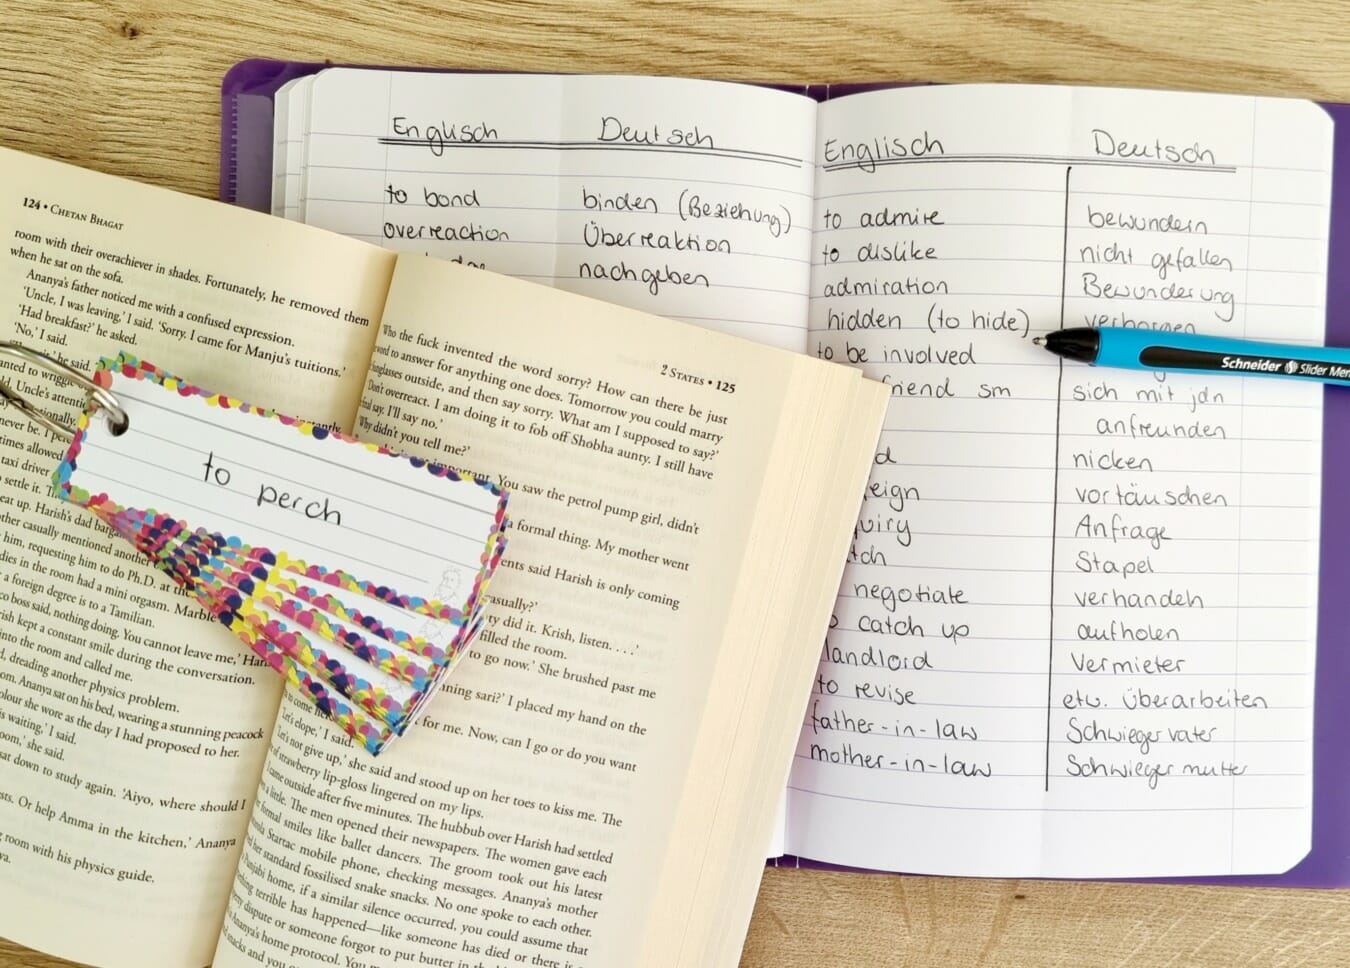 124 • CHETAN BHAGAT
room with their overachiever in shades. Fortunately, he removed them
when he sat on the sofa.
Ananya's father noticed me with a confused expression.
'Uncle, I was leaving,' I said. 'Sorry. I came for Manju's tuitions.'
'Had breakfast?' he asked.
'No,' I said.
he said.
to perch
taxi driver
settle it.
eat up. Harish's dad
other casually mentioned another
him, requesting him to do Ph.D. at the
dies in the room had a mini orgasm. Marble
a foreign degree is to a Tamilian.
co boss said, nothing doing. You cannot leave me,'
rish kept a constant smile during the conversation.
into the room and called me.
d, dreading another physics problem.
om. Ananya sat on his bed, wearing a stunning peacock
olour she wore as the day I had proposed to her.
is waiting,' I said.
oom,' she said.
sat down to study again. 'Aiyo, where should I
sts. Or help Amma in the kitchen,' Ananya
room with his physics guide.
2 STATES • 125
Who the fuck invented the word sorry? How can there be just
word to answer for anything one does. Tomorrow you could marry
sunglasses outside, and then say sorry. What am I supposed to say?'
Don't overreact. I am doing it to fob off Shobha aunty. I still have
say, I'll say no.'
Why didn't you tell me?'
important. You saw the petrol pump girl, didn't
a formal thing. My mother went
ents said Harish is only coming
asually?'
ty did it. Krish, listen. . . .'
filled the room.
to go now.' She brushed past me
ning sari?' I placed my hand on the
for me. Now, can I go or do you want
to come
'Let's elope,' I said.
'Let's not give up,' she said and stood up on her toes to kiss me. The
of strawberry lip-gloss lingered on my lips.
came outside after five minutes. The hubbub over Harish had settled
a little. The men opened their newspapers. The women gave each
formal smiles like ballet dancers. The groom took out his latest
Startac mobile phone, checking messages. Ananya's mother
her standard fossilised snake snacks. No one spoke to each other.
Punjabi home, if a similar silence occurred, you could assume that
terrible has happened—like someone has died or there is
dispute or someone forgot to put butter in the
Ananya's home protocol. You
snacks and you
Englisch Deutsch
to bond binden (Beziehung)
overreaction Überreaktion
nachgeben
Englisch Deutsch
to admire bewundern
to dislike nicht gefallen
admiration Bewunderung
hidden (to hide) verborgen
to be involved
friend sm sich mit jdn
anfreunden
d nicken
eign vortäuschen
quiry Anfrage
tch Stapel
negotiate verhandeln
catch up aufholen
landlord Vermieter
to revise etw. überarbeiten
father-in-law Schwiegervater
mother-in-law Schwiegermutter
Schneider Slider Mem